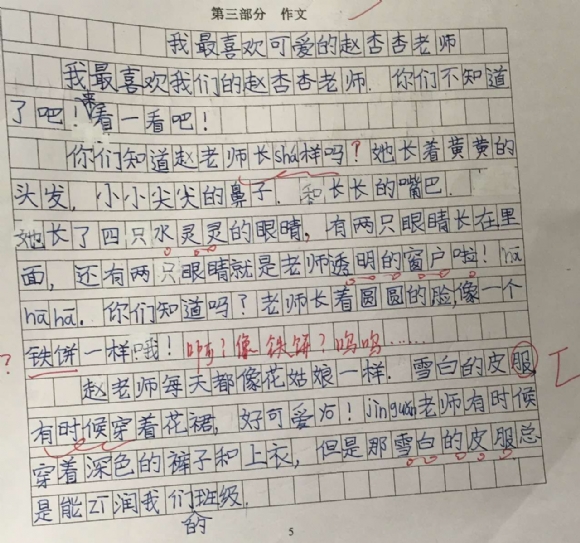 第三部分 作文
我最喜欢可爱的赵杏杏老师
我最喜欢我们的赵杏杏老师.你们不知道
了吧!来看一看吧!
你们知道赵老师长shá样吗?她长着黄黄的
头发,小小尖尖的鼻子.和长长的嘴巴.
她长了四只水灵灵的眼睛,有两只眼睛长在里
面,还有两只眼睛就是老师透明的窗户啦!hā
hā hā.你们知道吗?老师长着圆圆的脸,像一个
?铁饼一样哦!啊?像铁饼?呜呜……
赵老师每天都像花姑娘一样.雪白的皮服,
有时候穿着花裙,好可爱~~哟~~!jǐnguǎn老师有时候
穿着深色的裤子和上衣,但是那雪白的皮服总
是能zī润我们的班级.
5